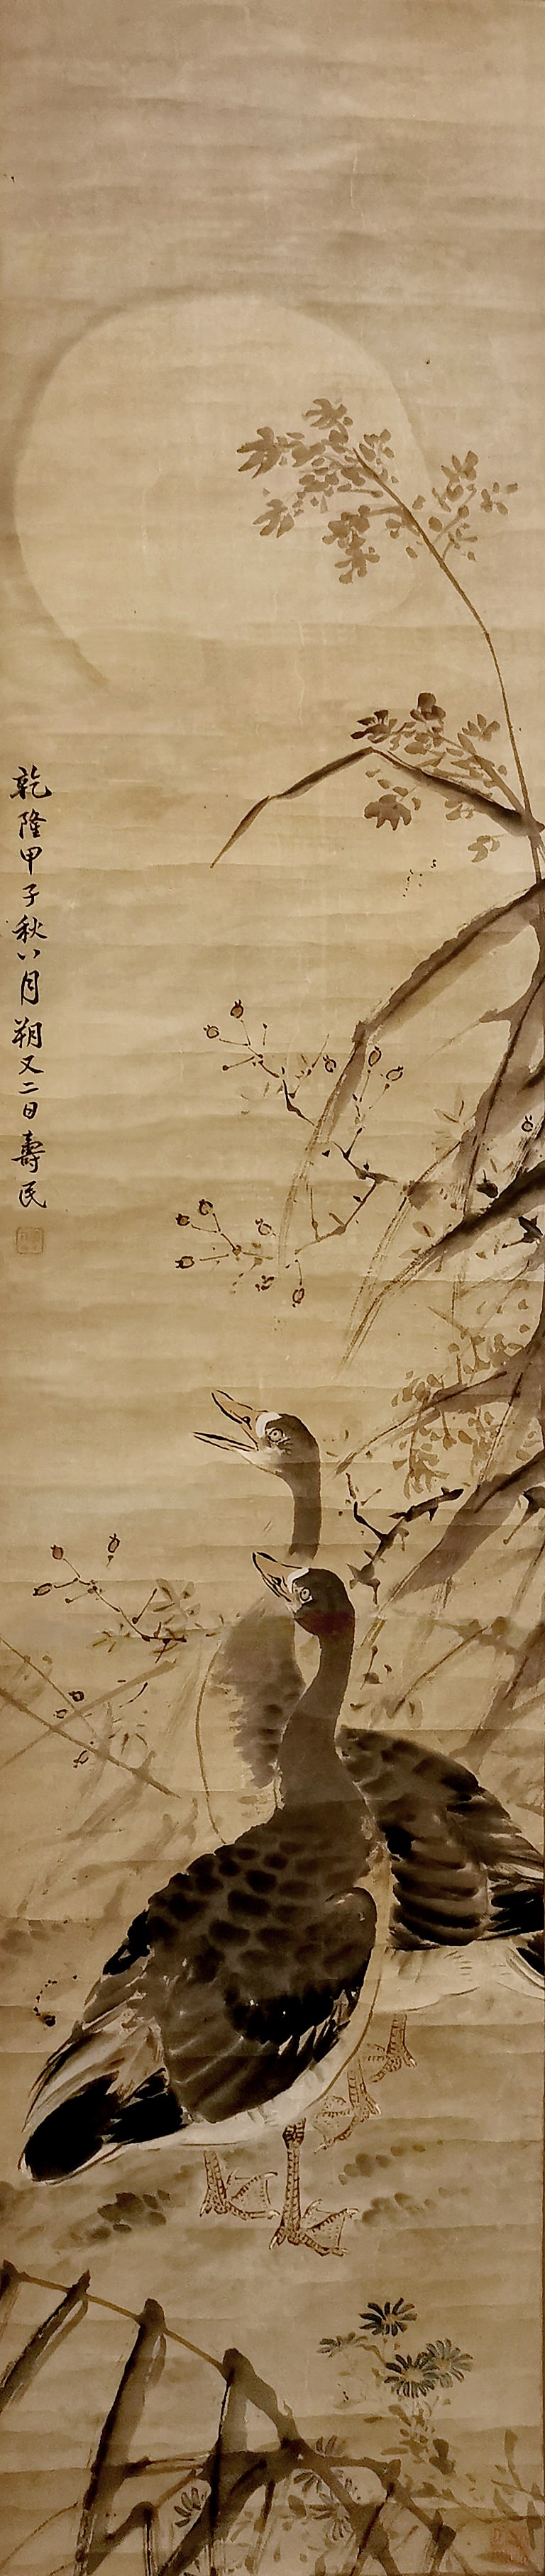 乾隆甲子秋八月朔又二日壽民